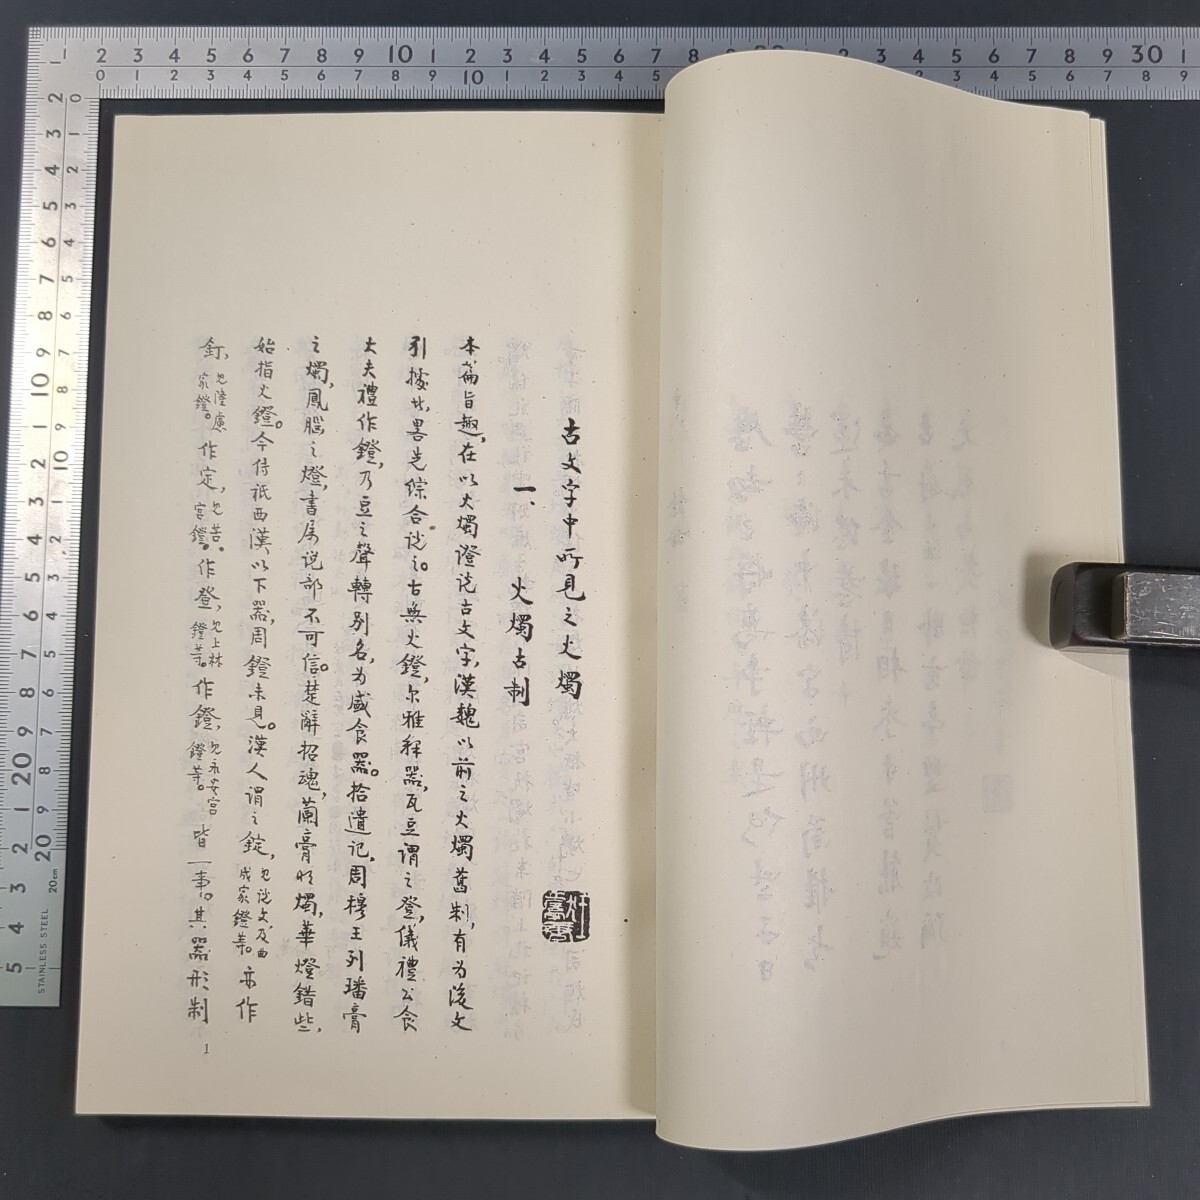 古文字中所見之火燭
一、火燭古制
本篇旨趣，在以火燭證说古文字，漢魏以前之火燭舊制，有为後文
引據者，畧先綜合说之。古無火鐙，尔雅释器，瓦豆谓之登，儀禮公食
大夫禮作鐙，乃豆之聲轉别名，为盛食器。拾遺记，周穆王列璠膏
之燭，鳳腦之燈，書屬说部不可信。楚辭招魂，蘭膏明燭，華燈錯些，
始指火鐙。今传祇西漢以下器，周鐙未見。漢人谓之錠，见说文，及曲成家鐙等。亦作
釘，见陸慮家鐙。作定，见苦宫鐙。作登，见上林鐙等。作鐙，见永安宫鐙等。皆一事。其器形制
1
STAINLESS STEEL
20cm